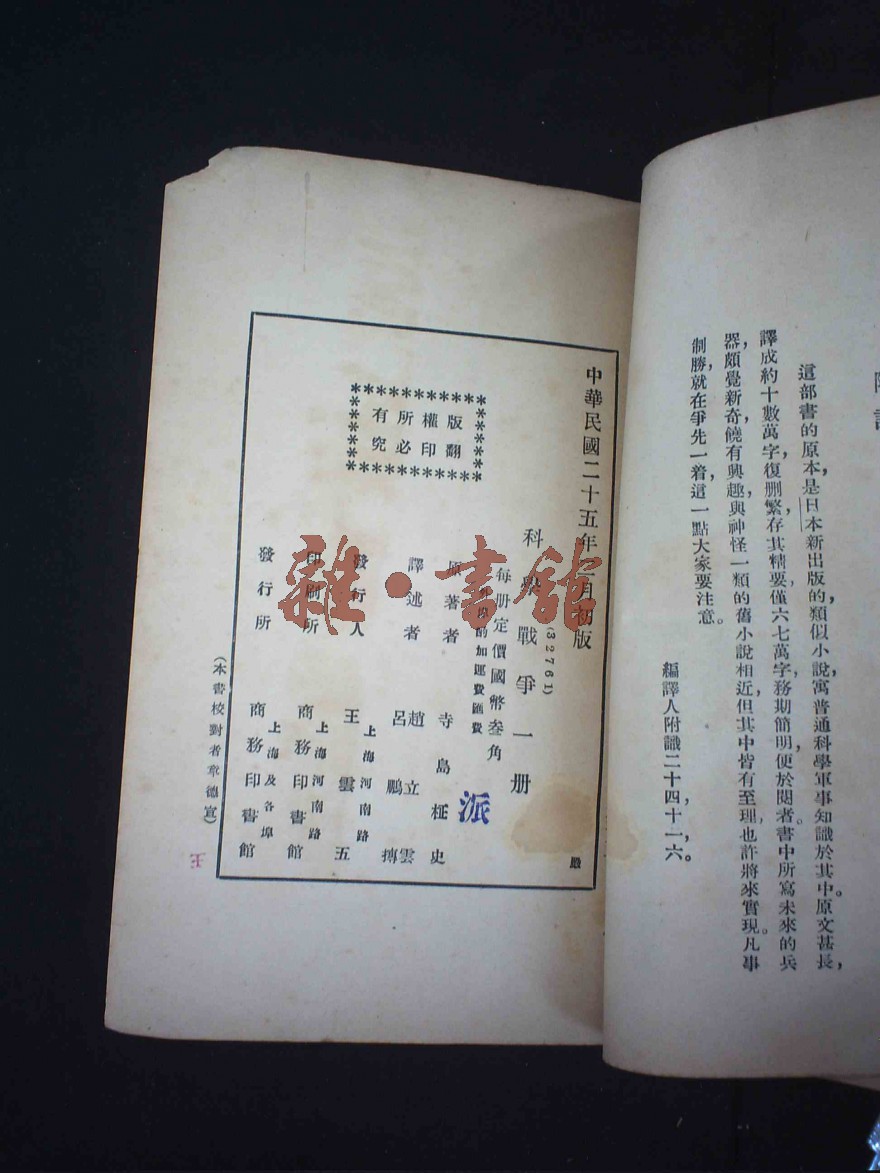 這部書的原本，是日本新出版的，類似小說，寓普通科學軍事知識於其中。原文甚長，
譯成約十數萬字，復刪繁存其精要，僅六七萬字，務期簡明，便於閱者。書中所寫未來的兵
器，頗覺新奇，饒有興趣，與神怪一類的舊小說相近，但其中皆有至理，也許將來實現。凡事
制勝，就在爭先一着，這一點大家要注意。
編譯人附識二十四，十一，六。
中華民國二十五年 月初版
(32761)
科學戰爭一册
每册定價國幣叁角
加運費匯費
原著者 寺島柾史
譯述者 趙立雲 呂鵬摶
發行人 王雲五
上海河南路
印刷所 商務印書館
上海河南路
發行所 商務印書館
上海及各埠
版權所有
翻印必究
(本書校對者章德宣)
雜·書館
派
嚴
王